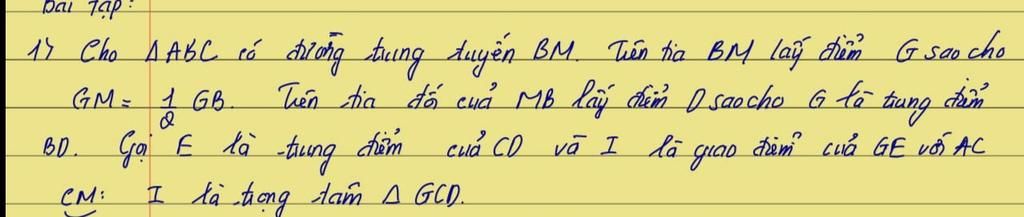 Bài Tập:
1) Cho ΔABC có đường trung tuyến BM. Trên tia BM lấy điểm G sao cho
GM = 1/2 GB. Trên tia đối của MB lấy điểm D sao cho G là trung điểm
BD. Gọi E là trung điểm của CD và I là giao điểm của GE với AC
CM: I là trọng tâm Δ GCD.